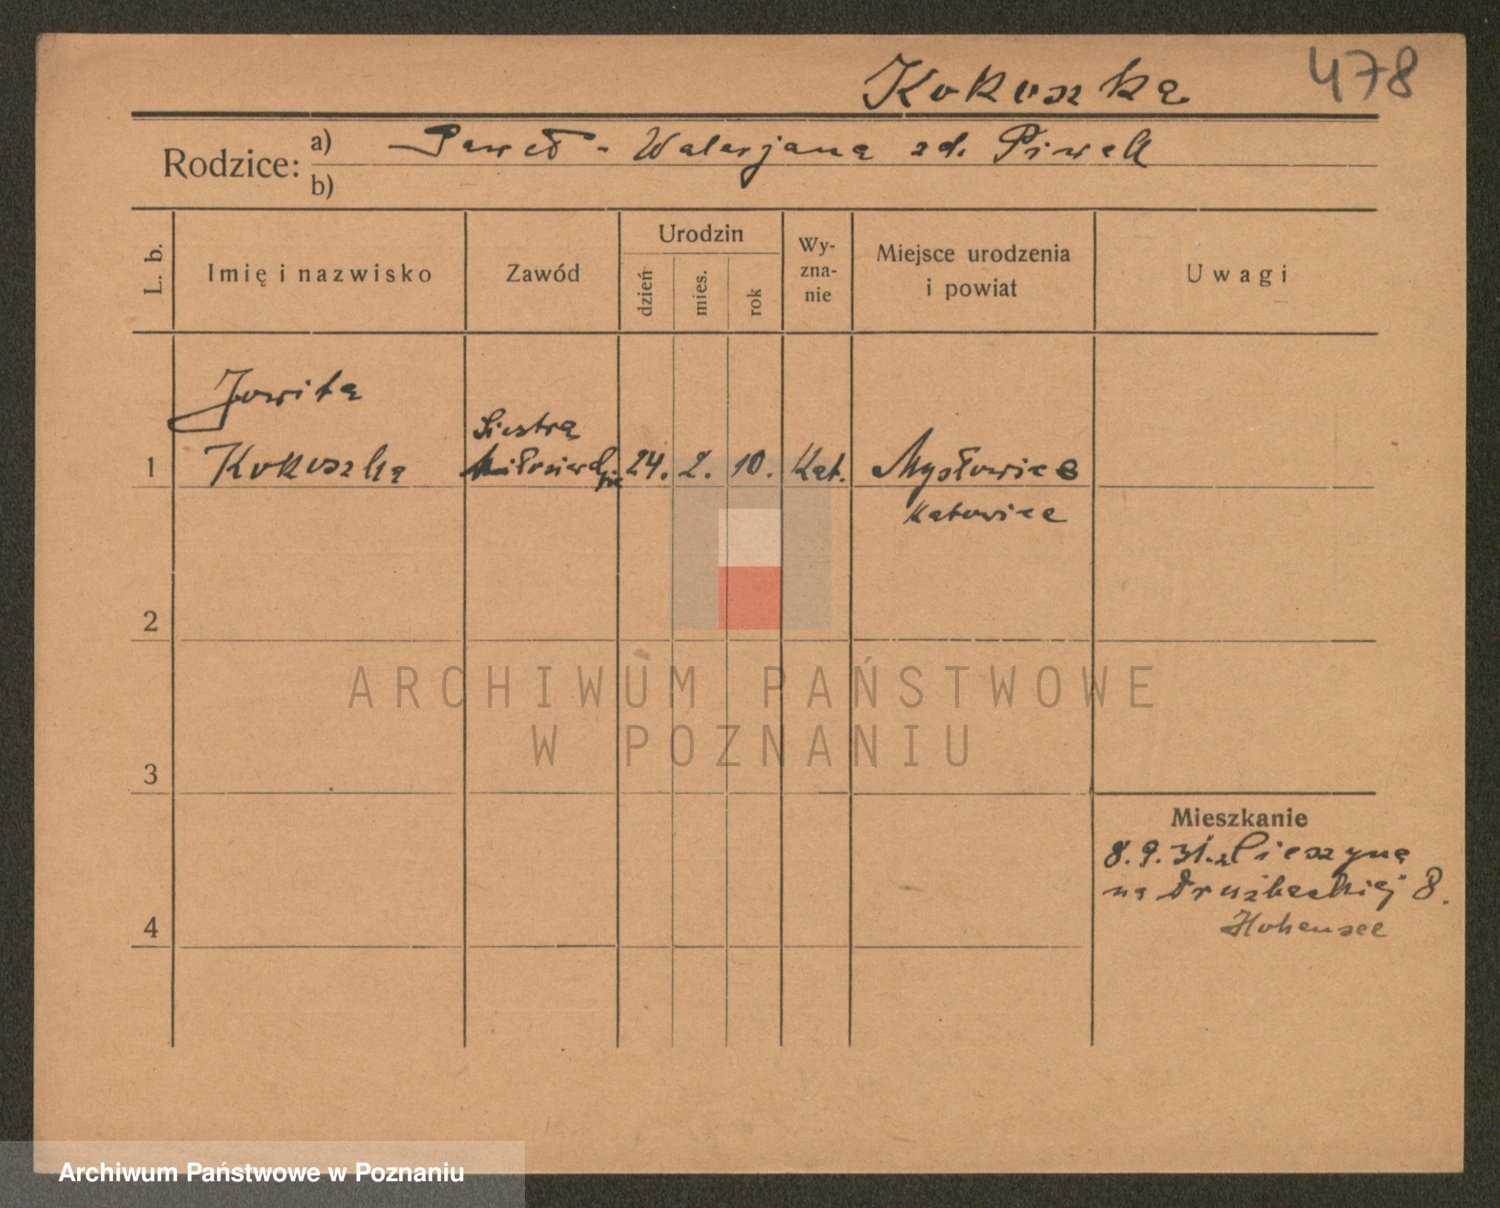 Kokoszka 478
Rodzice: a) Paweł - Walerjana zd. Piwek
b)
L. b. Imię i nazwisko Zawód Urodzin dzień mies. rok Wy-
zna-
nie Miejsce urodzenia
i powiat Uwagi
Jowita
Siostra
1 Kokoszka Miłosierdzia 24. 2. 10. Kat. Mysłowice
Katowice
2
ARCHIWUM PAŃSTWOWE
W POZNANIU
3
Mieszkanie
8.9.31. z Cieszyna
na Drużbackiej 8.
4 Hohensee
Archiwum Państwowe w Poznaniu